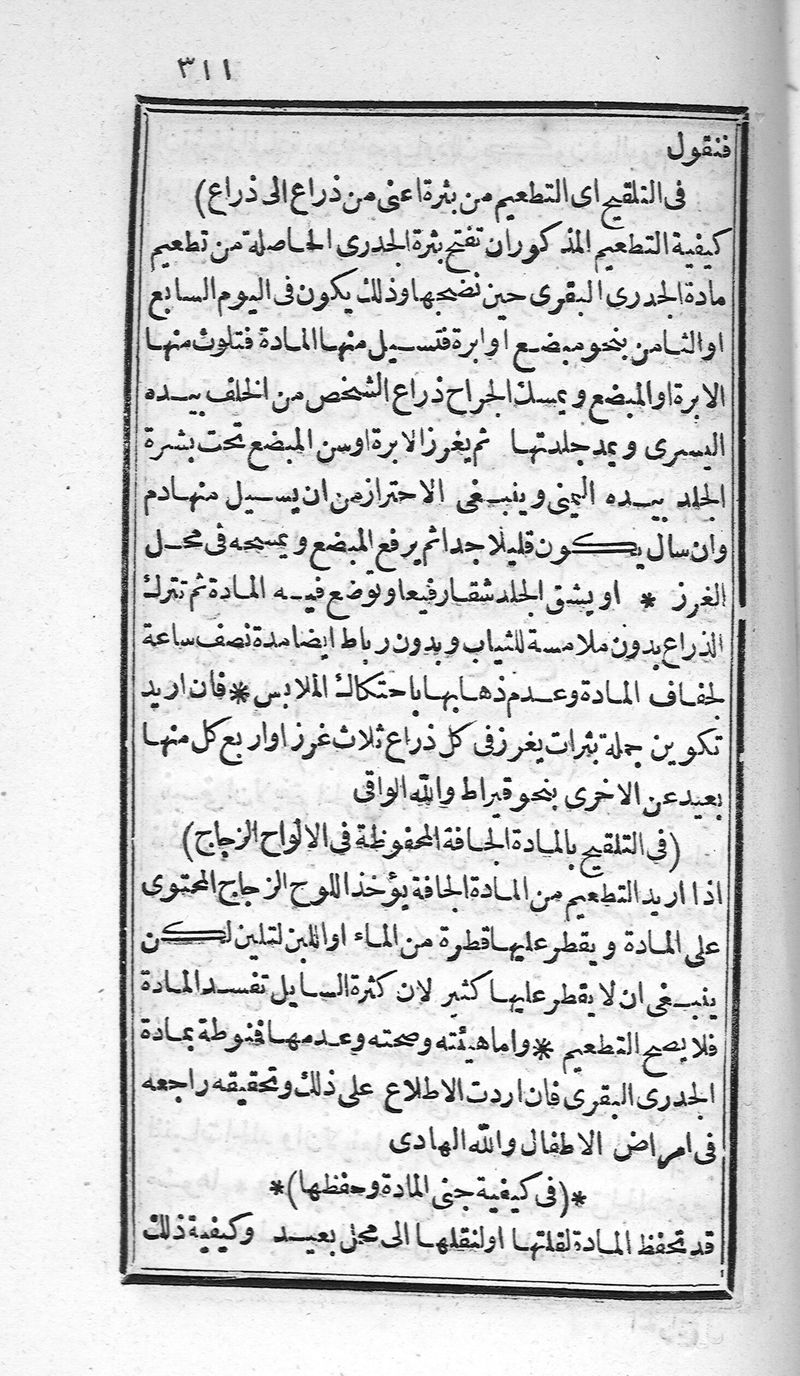 ٣١١
فنقول
فى التلقيح اى التطعيم من بثرة اعنى من ذراع الى ذراع)
كيفية التطعيم المذكور ان تفتح بثرة الجدرى الحاصلة من تطعيم
مادة الجدرى البقرى حين نضجها وذلك يكون فى اليوم السابع
او الثامن بنحو مبضع او ابرة فتسيل منها المادة فتلوث منها
الابرة او المبضع ويمسك الجراح ذراع الشخص من الخلف بيده
اليسرى ويمد جلدتها ثم يغرز الابرة او سن المبضع تحت بشرة
الجلد بيده اليمنى وينبغى الاحتراز من ان يسيل منها دم
وان سال يكون قليلا جدا ثم يرفع المبضع ويمسحه فى محل
الغرز * او يشق الجلد شقا رفيعا وتوضع فيه المادة ثم تترك
الذراع بدون ملامسة للثياب وبدون رباط ايضا مدة نصف ساعة
لجفاف المادة وعدم ذهابها باحتكاك الملابس * فان اريد
تكوين جملة بثرات يغرز فى كل ذراع ثلاث غرز او اربع كل منها
بعيد عن الاخرى بنحو قيراط والله الواقى
(فى التلقيح بالمادة الجافة المحفوظة فى الالواح الزجاج)
اذا اريد التطعيم من المادة الجافة يؤخذ اللوح الزجاج المحتوى
على المادة ويقطر عليها قطرة من الماء او اللبن لتلين لكن
ينبغى ان لا يقطر عليها كثير لان كثرة السايل تفسد المادة
فلا يصح التطعيم * واما هيئته وصحته وعدمها فنوطة بمادة
الجدرى البقرى فان اردت الاطلاع على ذلك وتحقيقه راجعه
فى امراض الاطفال والله الهادى
*(فى كيفية جنى المادة وحفظها)*
قد تحفظ المادة لقلتها او لنقلها الى محل بعيد وكيفية ذلك